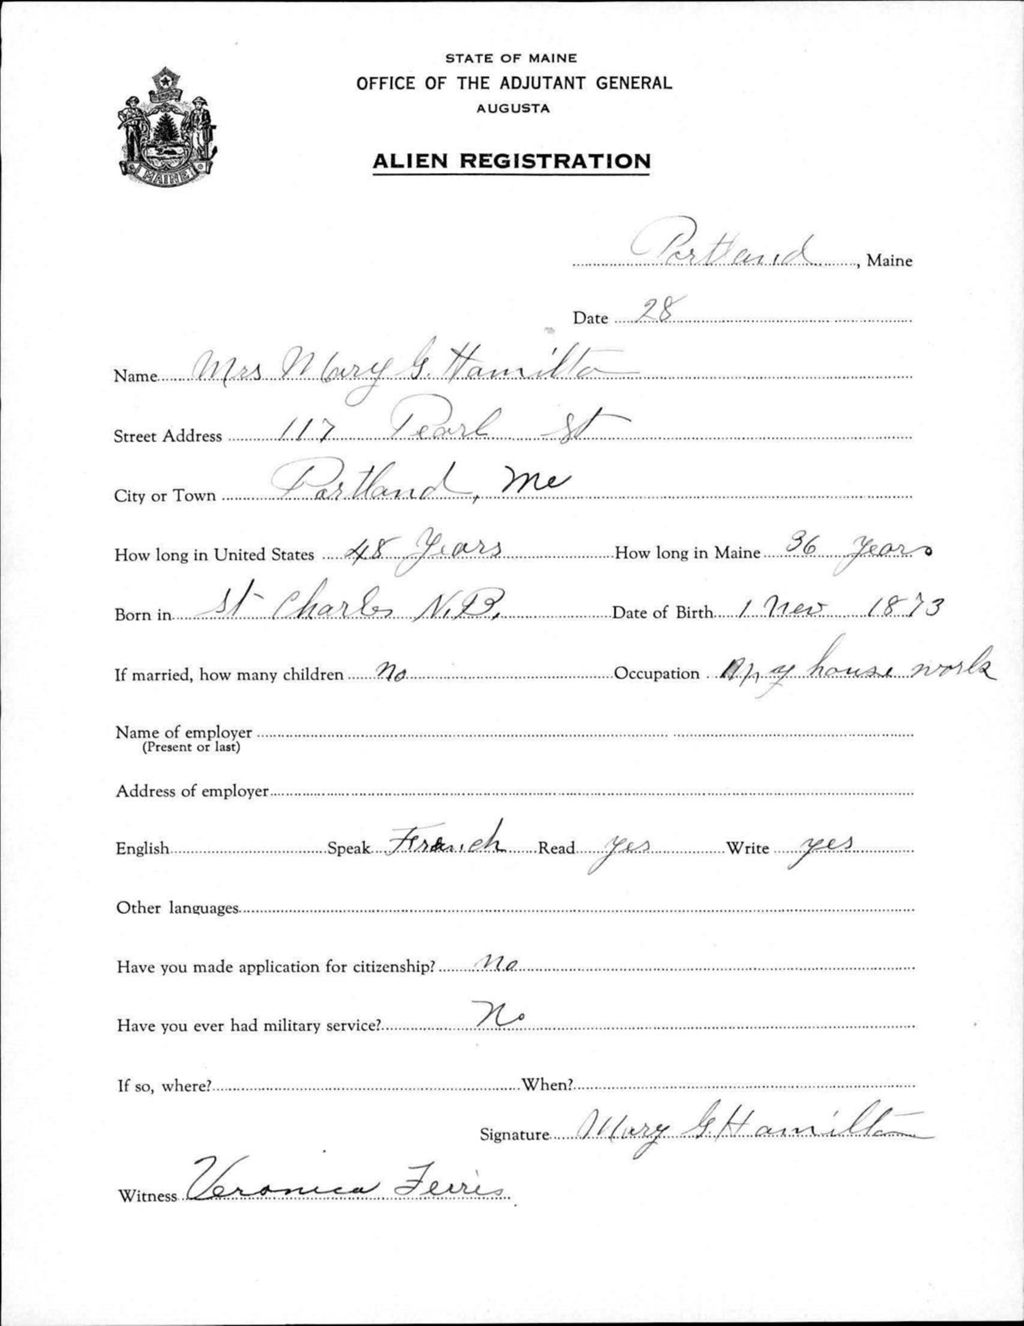 STATE OF MAINE
OFFICE OF THE ADJUTANT GENERAL
AUGUSTA
ALIEN REGISTRATION
MAINE
Portland, Maine
Date 28
Name Mrs Mary G. Hamilton
Street Address 117 Pearl St
City or Town Portland, Me
How long in United States 48 Years How long in Maine 36 Years
Born in St Charles N.B. Date of Birth 1 Nov 1873
If married, how many children No Occupation My house work
Name of employer
(Present or last)
Address of employer
English Speak French Read yes Write yes
Other languages
Have you made application for citizenship? No
Have you ever had military service? No
If so, where? When?
Signature Mary G. Hamilton
Witness Veronica Ferris